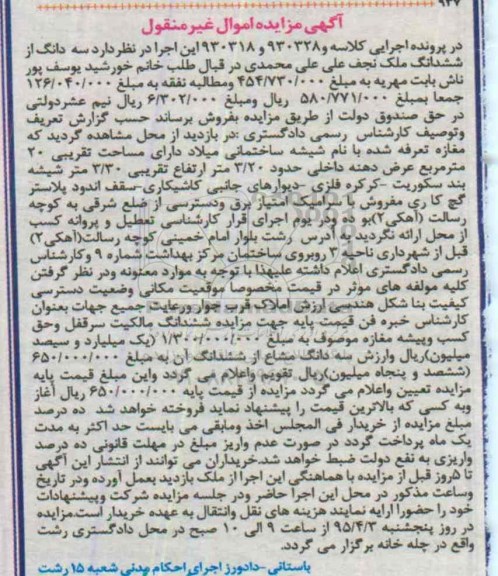 ۹۴۷
آگهی مزایده اموال غیر منقول
در پرونده اجرایی کلاسه و۹۳۰۳۲۸ و ۹۳۰۳۱۸ این اجرا در نظر دارد سه دانگ از
ششدانگ ملک نجف علی علی محمدی در قبال طلب خانم خورشید یوسف پور
ناش بابت مهریه به مبلغ ۴۵۴/۷۳۰/۰۰۰ ومطالبه نفقه به مبلغ ۱۲۶/۰۴۰/۰۰۰
جمعا بمبلغ ۵۸۰/۷۷۱/۰۰۰ ریال ومبلغ ۶/۳۰۲/۰۰۰ ریال نیم عشردولتی
در حق صندوق دولت از طریق مزایده بفروش برساند حسب گزارش تعریف
وتوصیف کارشناس رسمی دادگستری :در بازدید از محل مشاهده گردید که
مغازه تعرفه شده با نام شیشه ساختمانی میلاد دارای مساحت تقریبی ۲۰
مترمربع عرض دهنه داخلی حدود ۳/۲۰ متر ارتفاع تقریبی ۳/۳۰ متر شیشه
بند سکوریت -کرکره فلزی -دیوارهای جانبی کاشیکاری-سقف اندود پلاستر
گچ کا ری مفروش با سرامیک امتیاز برق ودسترسی از ضلع شرقی به کوچه
رسالت (آهکی۲)بو د در یوم اجرای قرار کارشناسی تعطیل و پروانه کسب
از محل ارائه نگردید به آدرس رشت بلوار امام خمینی کوچه رسالت(آهکی۲)
قبل از شهرداری ناحیه ۳ روبروی ساختمان مرکز بهداشت شماره ۹ وکارشناس
رسمی دادگستری اعلام داشته علیهذا با توجه به موارد معنونه ودر نظر گرفتن
کلیه مولفه های موثر در قیمت مخصوصا موقعیت مکانی وضعیت دسترسی
کیفیت بنا شکل هندسی ارزش املاک قرب جوار ورعایت جمیع جهات بعنوان
کارشناس خبره فن قیمت پایه جهت مزایده ششدانگ مالکیت سرقفل وحق
کسب وپیشه مغازه موصوف به مبلغ ۱/۳۰۰/۰۰۰/۰۰۰ (یک میلیارد و سیصد
میلیون)ریال وارزش سه دانگ مشاع از ششدانگ آن به مبلغ ۶۵۰/۰۰۰/۰۰۰
(ششصد و پنجاه میلیون)ریال تقویم واعلام می گردد واین مبلغ قیمت پایه
مزایده تعیین واعلام می گردد مزایده از قیمت پایه ۶۵۰/۰۰۰/۰۰۰ ریال آغاز
وبه کسی که بالاترین قیمت را پیشنهاد نماید فروخته خواهد شد ده درصد
مبلغ مزایده از خریدار فی المجلس اخذ ومابقی می بایست حد اکثر به مدت
یک ماه پرداخت گردد در صورت عدم واریز مبلغ در مهلت قانونی ده درصد
واریزی به نفع دولت ضبط خواهد شد.خریداران می توانند از انتشار این آگهی
تا ۵روز قبل از مزایده با هماهنگی این اجرا از ملک بازدید بعمل آورده ودر تاریخ
وساعت مذکور در محل این اجرا حاضر ودر جلسه مزایده شرکت وپیشنهادات
خود را حضورا ارایه نمایند هزینه های نقل وانتقال به عهده خریدار است.مزایده
در روز پنجشنبه ۹۵/۴/۳ از ساعت ۹ الی ۱۰ صبح در محل دادگستری رشت
واقع در چله خانه برگزار می گردد.
باستانی-دادورز اجرای احکام مدنی شعبه ۱۵ رشت